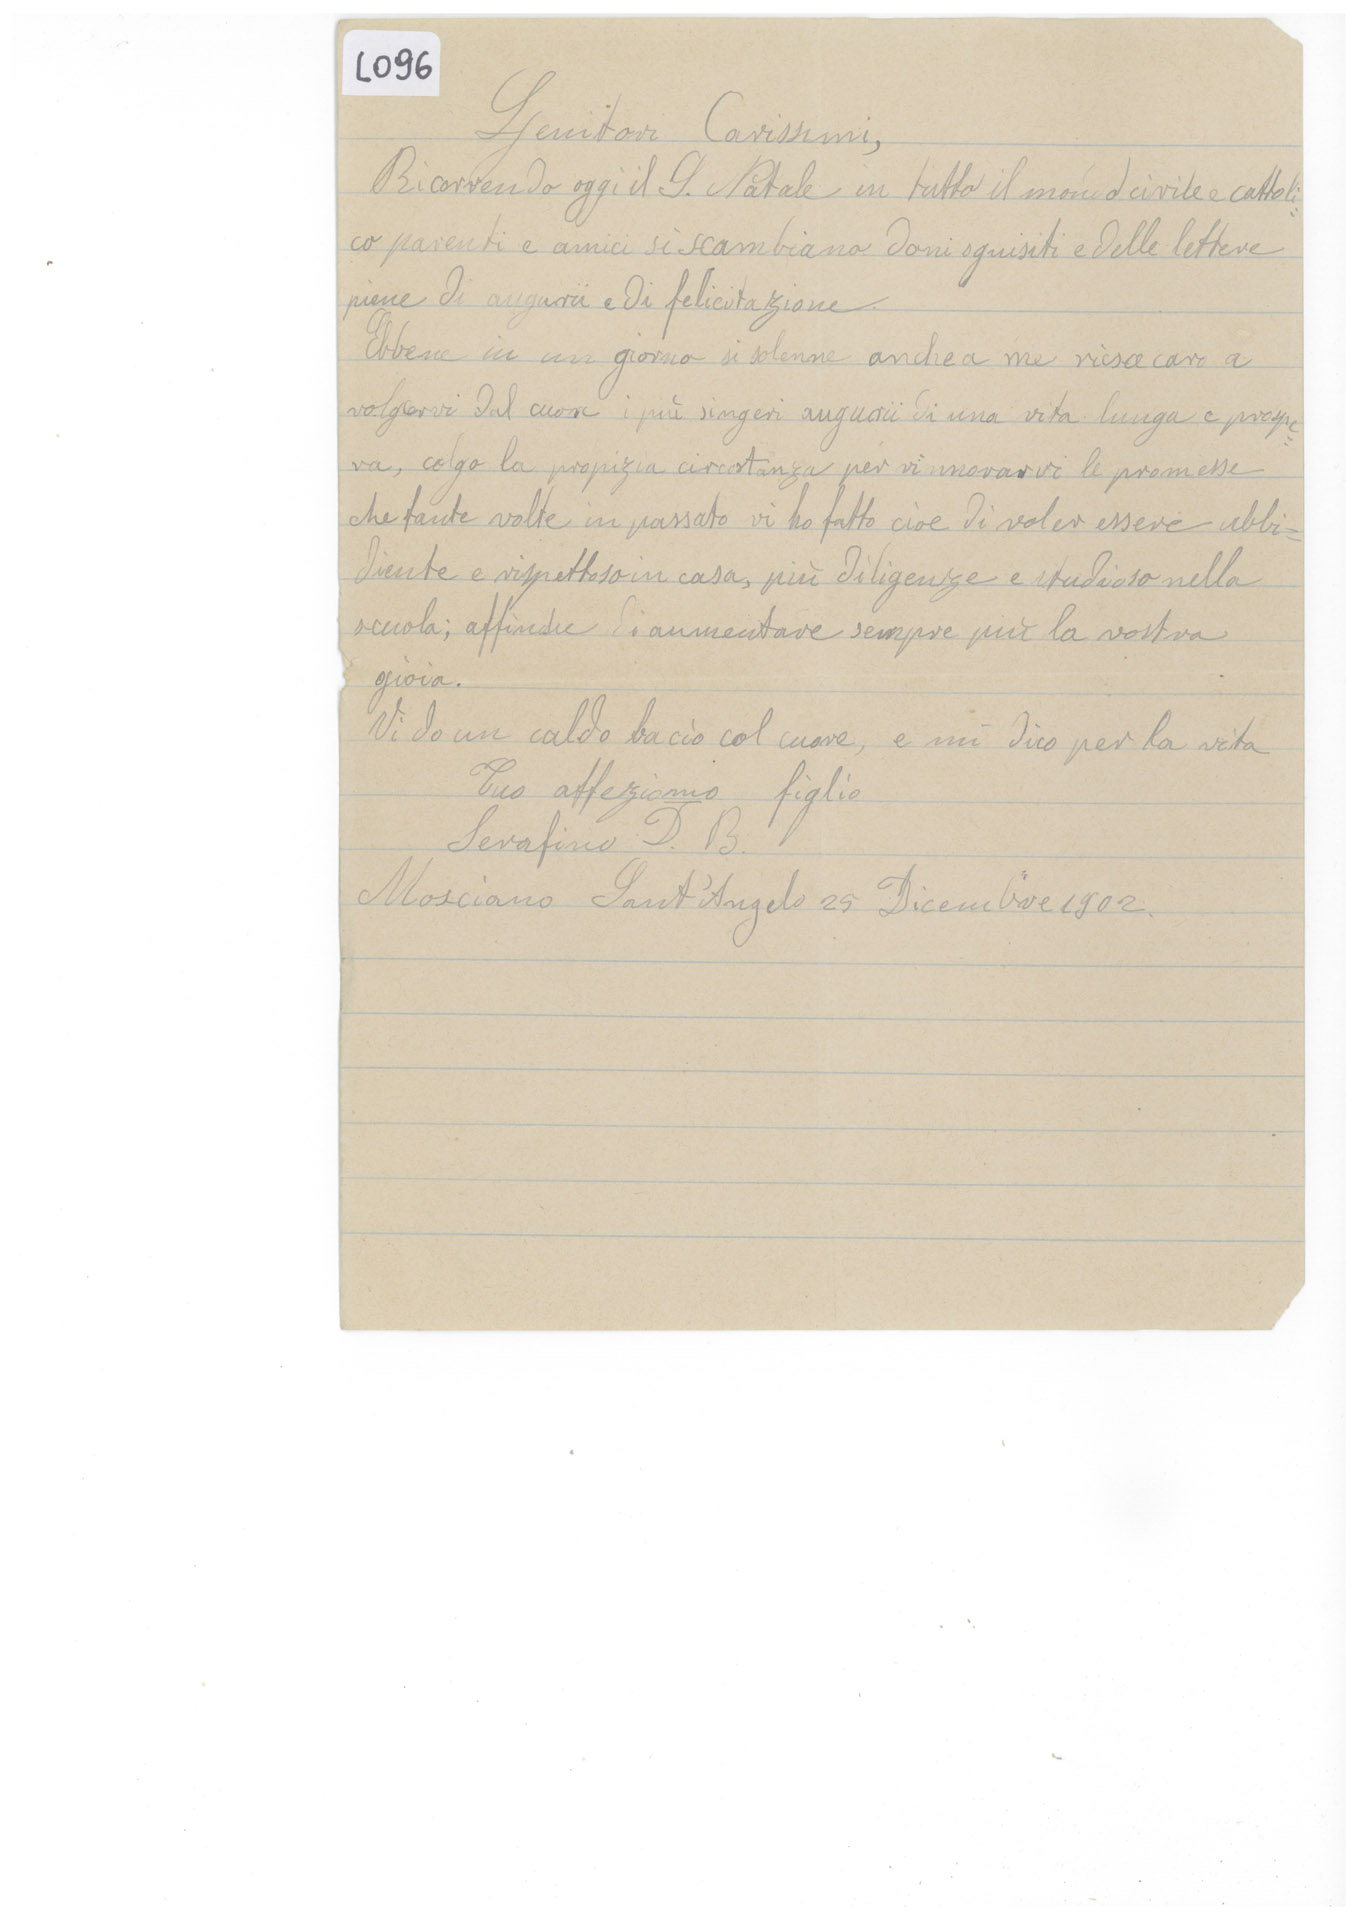 L096
Genitori Carissimi,
Ricorrendo oggi il S. Natale in tutto il mondo civile e cattoli=
co parenti e amici si scambiano doni squisiti e delle lettere
piene di augurii e di felicitazione.
Ebbene in un giorno si solenne anche a me riesce caro a
volgervi dal cuore i più singeri augurii di una vita lunga e prospe=
ra, colgo la propizia circostanza per rinnovarvi le promesse
che tante volte in passato vi ho fatto cioe di voler essere ubbi=
diente e rispettoso in casa, più diligenze e studioso nella
scuola; affinche di aumentare sempre più la vostra
gioia.
Vi do un caldo bacio col cuore, e mi dico per la vita
Tuo affeziomo figlio
Serafino D. B.
Mosciano Sant'Angelo 25 Dicembre 1902.